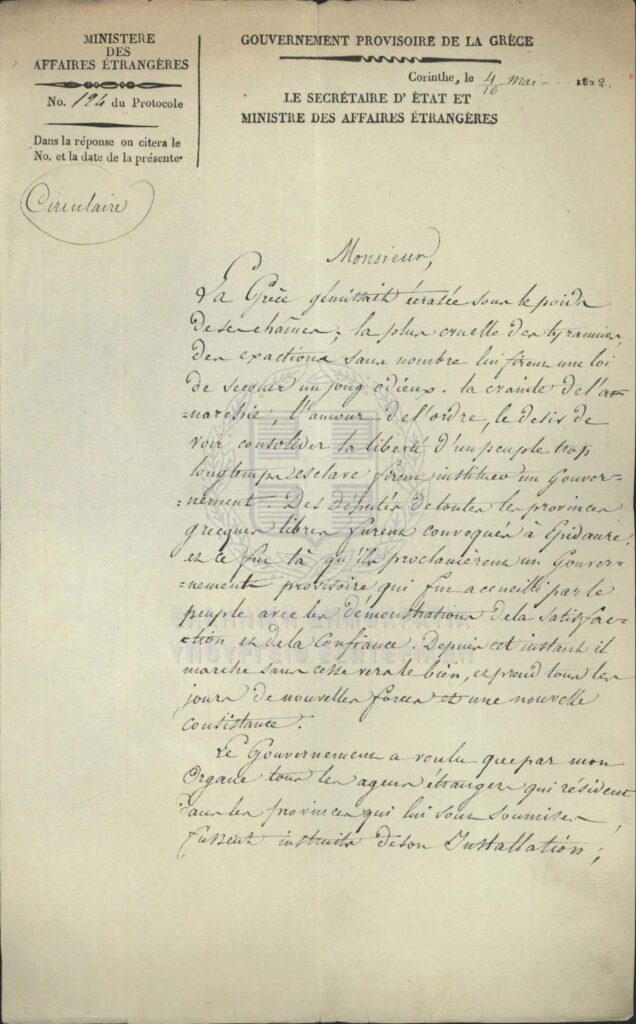 MINISTERE
DES
AFFAIRES ÉTRANGÈRES
No. 124 du Protocole
Dans la réponse on citera le
No. et la date de la présente.
Circulaire
GOUVERNEMENT PROVISOIRE DE LA GRÈCE
Corinthe, le 4/16 mai 1822.
LE SECRÉTAIRE D' ÈTAT ET
MINISTRE DES AFFAIRES ÉTRANGÈRES
Monsieur,
La Grèce gémissait écrasée sous le poids
de ses chaînes; la plus cruelle des tyrannies,
des exactions sans nombre lui firent une loi
de secouer un joug odieux. la crainte de l'a-
=narchie, l'amour de l'ordre, le desir de
voir consolider la liberté d'un peuple trop
longtemps esclave firent instituer un Gouver-
=nement. Des Députés de toutes les provinces
grecques libres furent convoqués à Epidaure,
et ce fut là qu'ils proclamèrent un Gouver-
=nement provisoire qui fut accueilli par le
peuple avec les démonstrations de la satisfac-
=tion et de la Confiance. Depuis cet instant il
marche sans cesse vers le bien, et prend tous les
jours de nouvelles forces et une nouvelle
consistance.
Le Gouvernement a voulu que par mon
Organe tous les agens étrangers qui résident
dans les provinces qui lui sont soumises
fussent instruits de son Installation;